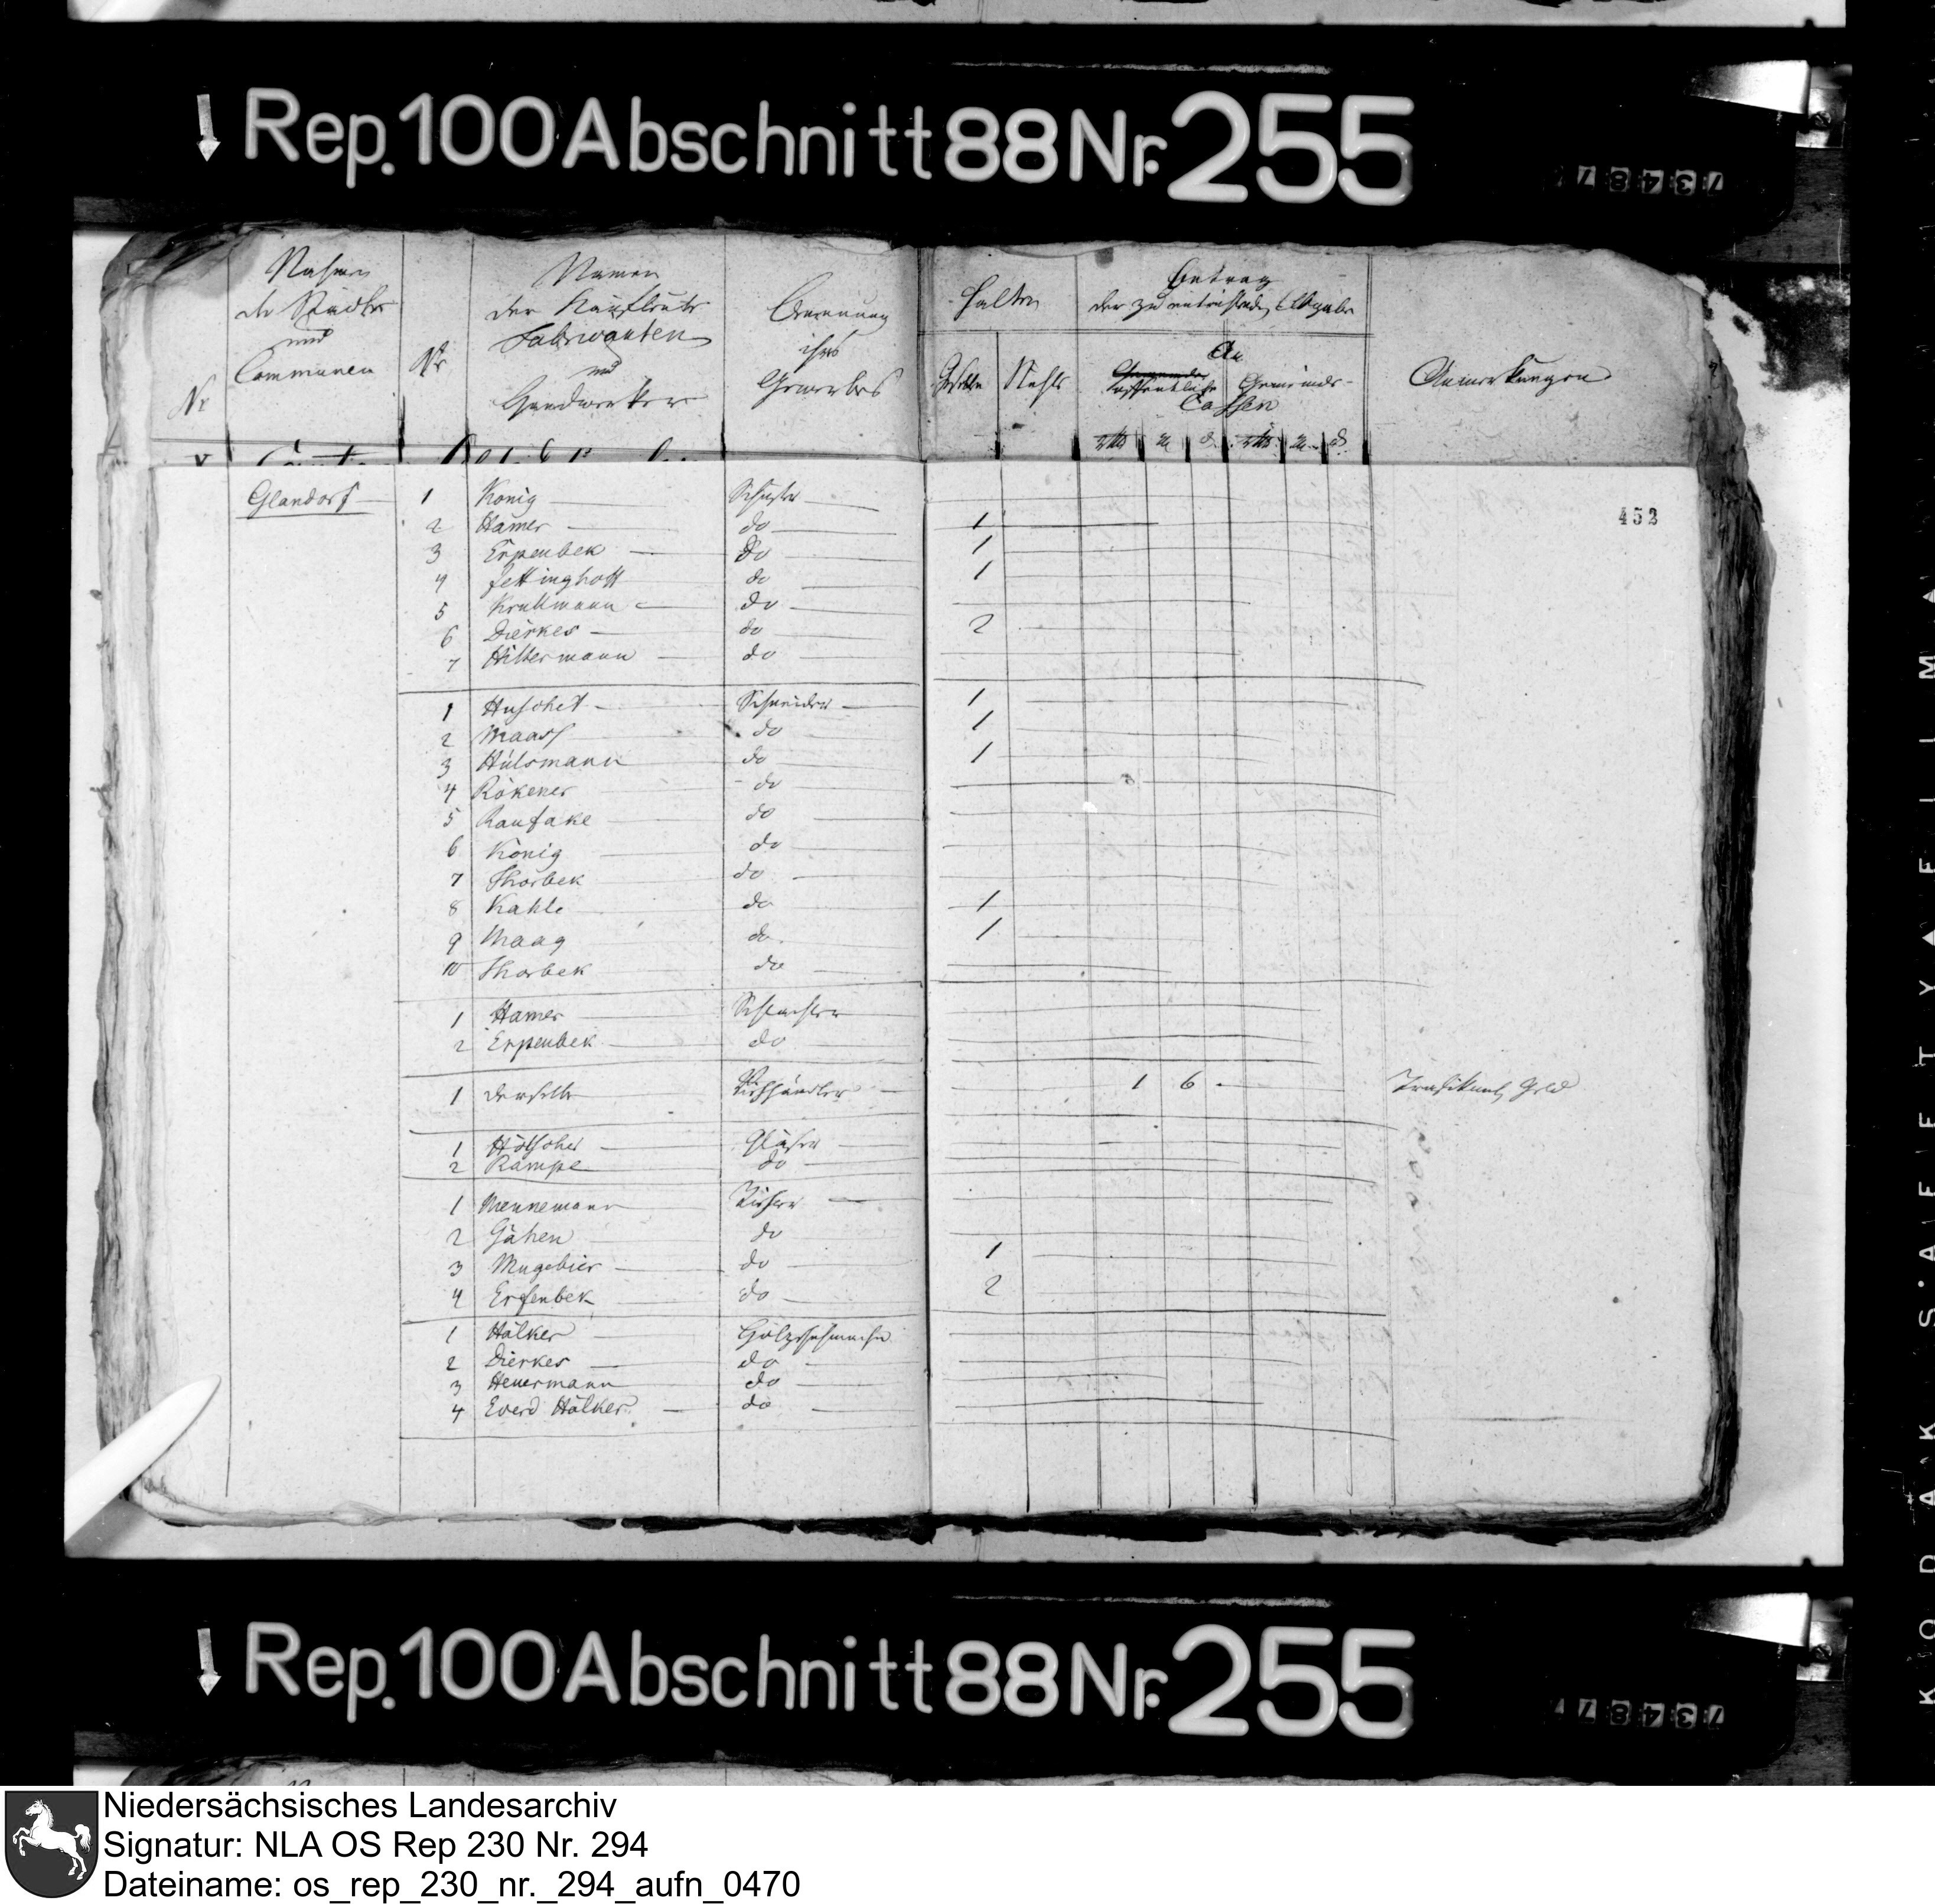 Rep. 100 Abschnitt 88 Nr. 255
73487
Nr
Nahmen
der Städte
und
Communen
Nr
Namen
der Kaufleute
Fabricanten
und
Handwerker
Benennung
ihres
Gewerbes
Halten
Gesellen
Betrag
der zu entrichtenden Abgabe
An
Gemeinde-
Cassen
Anmerkungen
452
Glandorf 1 König Schuster
2 Hamer do 1
3 Erpenbek do 1
4 Fettinghoff do 1
5 Krullmann do
6 Dierkes do 2
7 Hiltermann do
1 Huschet Schneider 1
2 Maass do 1
3 Hülsmann do 1
4 Rökener do
5 Raufake do
6 König do
7 Thorbek do
8 Kahle do 1
9 Maag do 1
10 Thorbek do
1 Hamer Schlachter
2 Erpenbek do
1 derselbe Viehhändler 1 6 Geld
1 Hölscher Gläser
2 Kampe do
1 Mennemann Tischer
2 Gähen do
3 Mugebier do 1
4 Erpenbek do 2
1 Hälker Holzschumacher
2 Dierkes do
3 Heuermann do
4 Everd Hälker do
Rep. 100 Abschnitt 88 Nr. 255
73487
KODAK SAFETY FILM
Niedersächsisches Landesarchiv
Signatur: NLA OS Rep 230 Nr. 294
Dateiname: os_rep_230_nr._294_aufn_0470